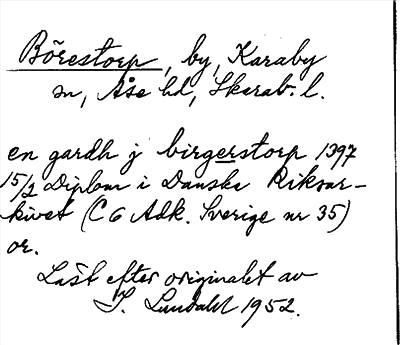 Börestorp, by, Karaby
sn, Åse hd, Skarab. l.
en gardh j birgerstorp 1397
15/2 Diplom i Danska Riksar-
kivet (C 6 Adk. Sverige nr 35)
or.
Läst efter originalet av
I. Lundahl 1952.